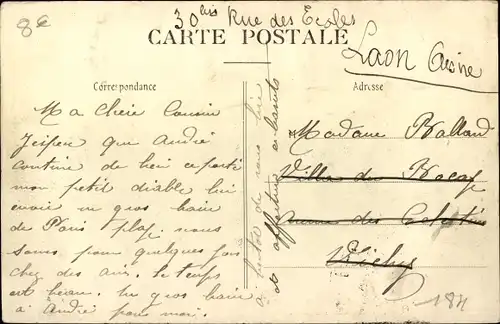 8€
30 bis Rue des Ecoles
CARTE POSTALE
Laon Aisne
Correspondance
Adresse
Ma chère Cousine
J'espère que André
continue de bien
mon petit diable lui
envoie un gros baiser
de Paris plage. nous
sommes pour quelques jours
chez des amis. le temps
est beau. un gros baiser
à André pour moi.
de vous lire
et affectueux baisers
Madame Balland
Villa du Bocage
des Celestins
Vichy
184